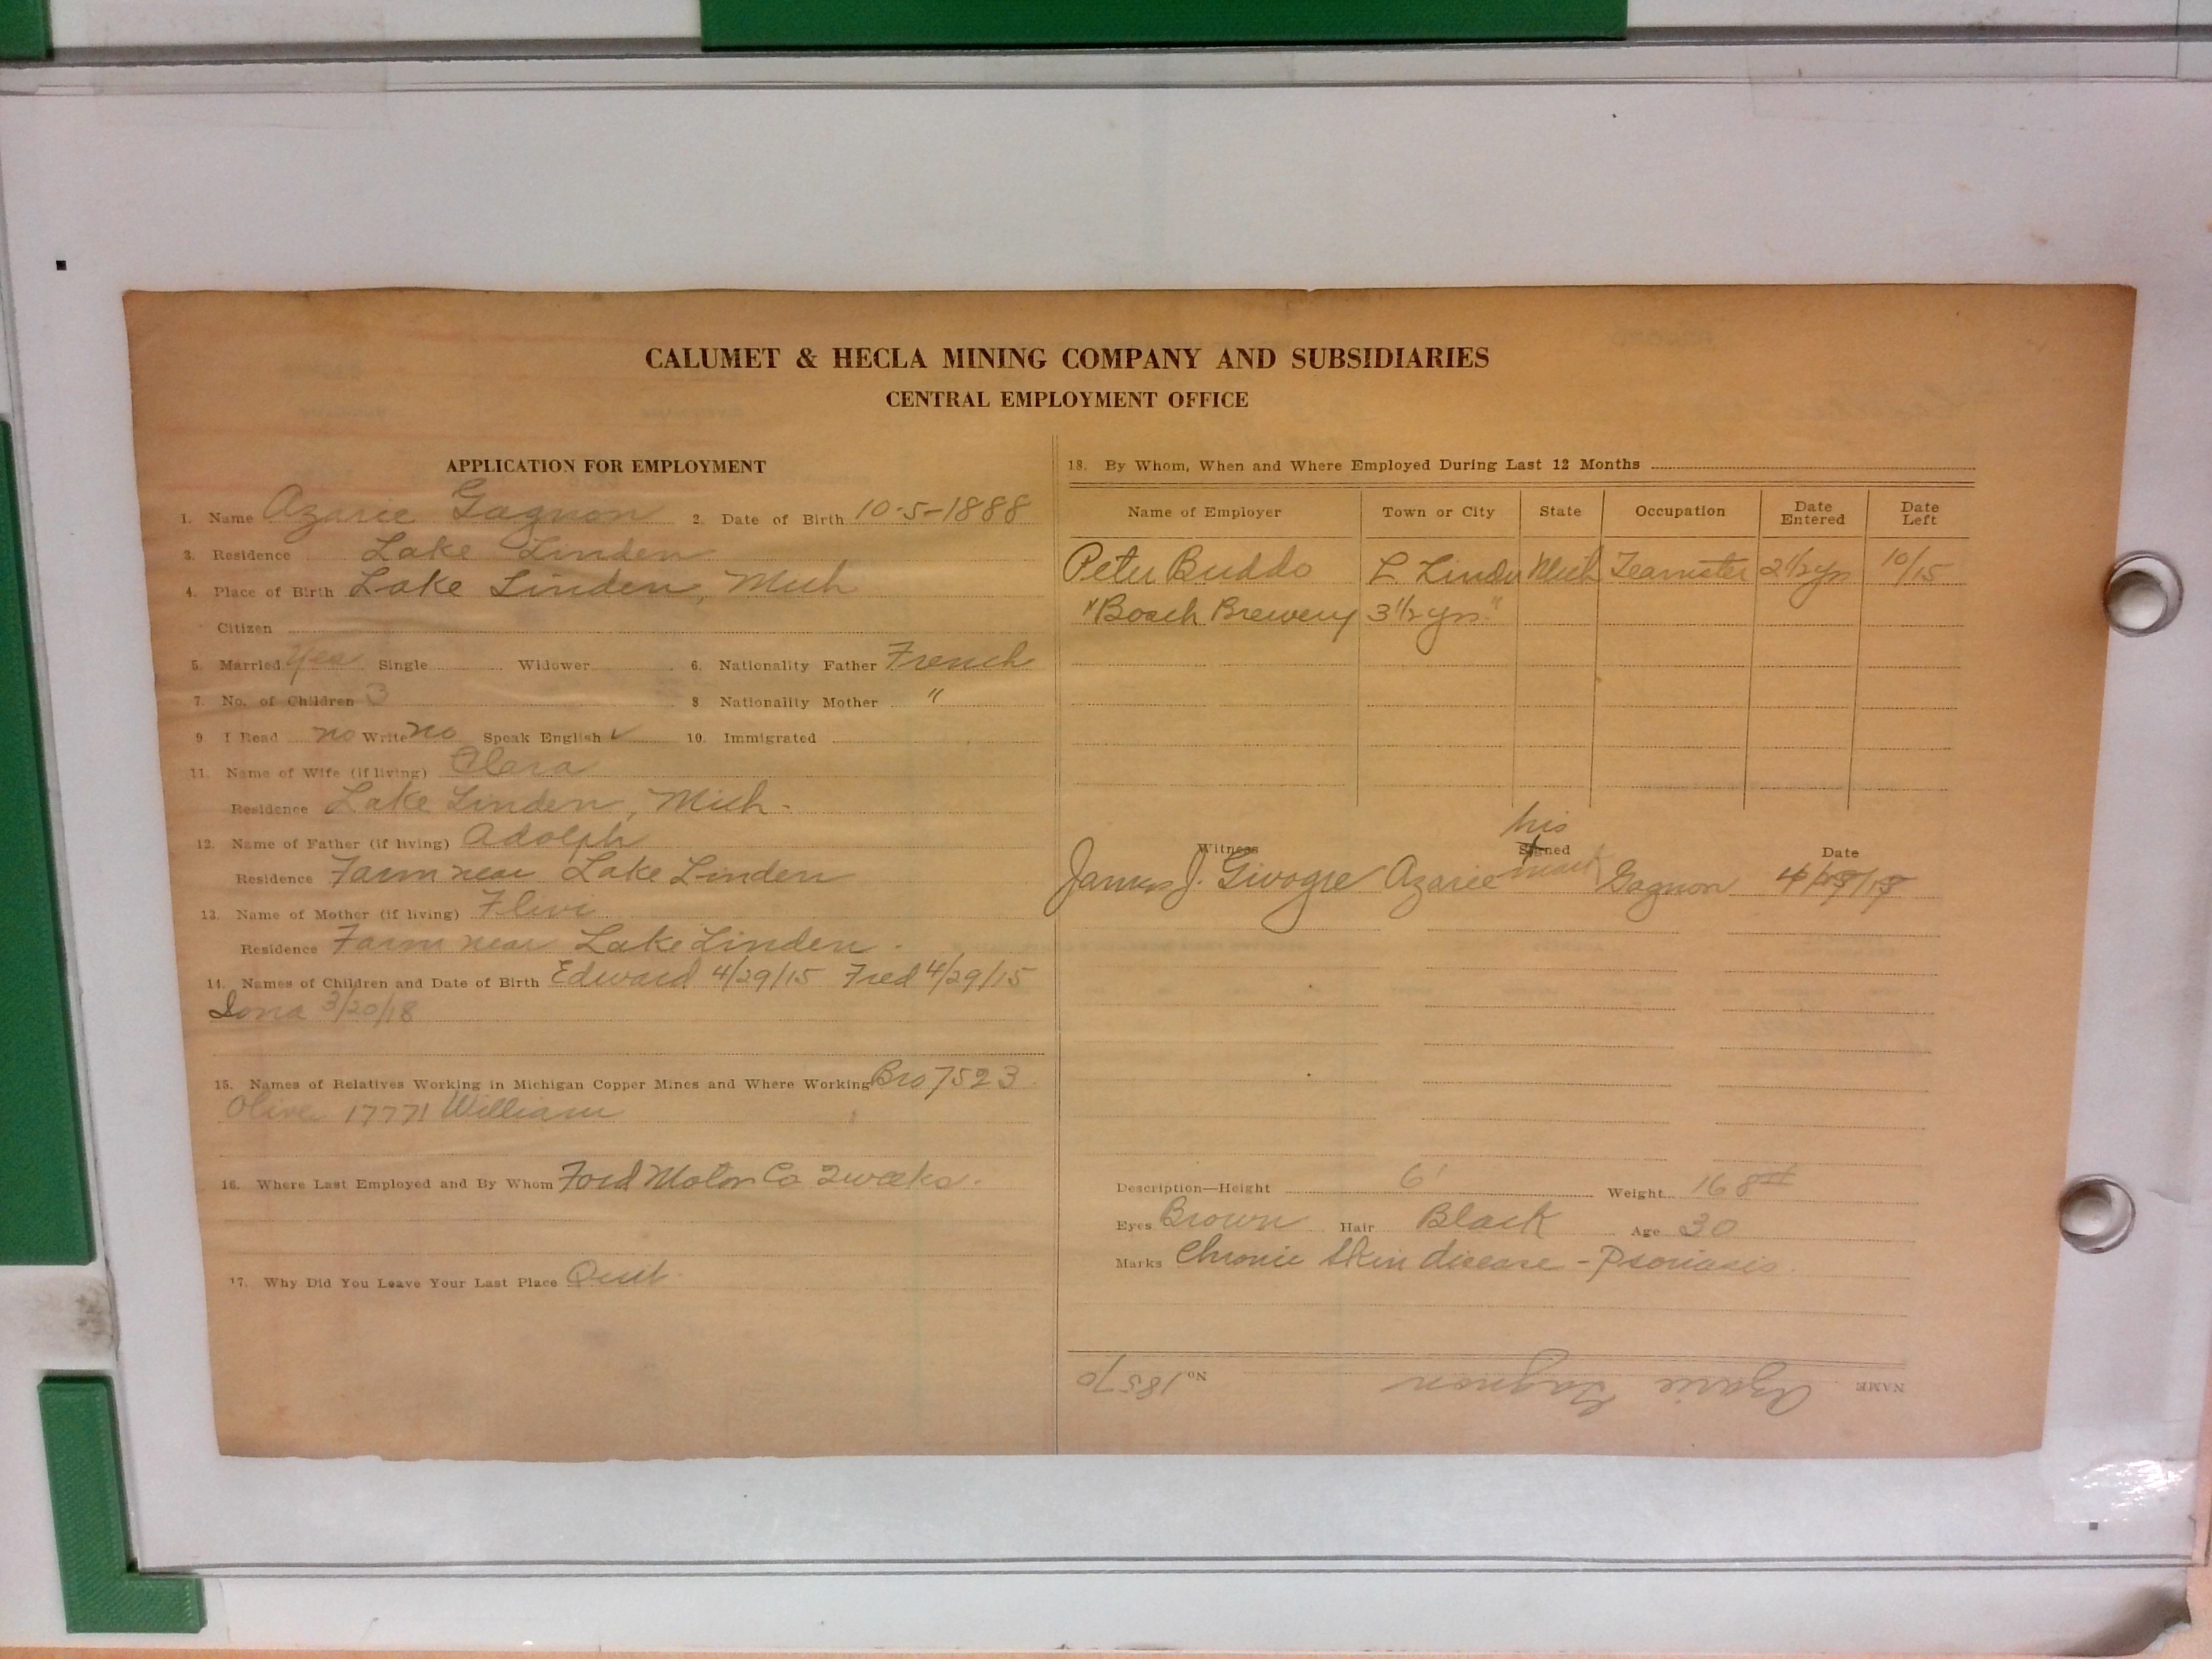 CALUMET & HECLA MINING COMPANY AND SUBSIDIARIES
CENTRAL EMPLOYMENT OFFICE
APPLICATION FOR EMPLOYMENT
1. Name Azarie Gagnon 2. Date of Birth 10-5-1888
3. Residence Lake Linden
4. Place of Birth Lake Linden, Mich
Citizen
5. Married Yes Single Widower 6. Nationality Father French
7. No. of Children 3 8 Nationality Mother "
9. I Read no Write no Speak English ✓ 10. Immigrated
11. Name of Wife (if living) Clara
Residence Lake Linden, Mich.
12. Name of Father (if living) Adolph
Residence Farm near Lake Linden
13. Name of Mother (if living)
Residence Farm near Lake Linden.
14. Names of Children and Date of Birth Edward 4/29/15 Fred 4/29/15
Iona 3/20/18
15. Names of Relatives Working in Michigan Copper Mines and Where Working Bro 7523
Olive 17771 William
16. Where Last Employed and By Whom Ford Motor Co 2 weeks.
17. Why Did You Leave Your Last Place Quit
18. By Whom, When and Where Employed During Last 12 Months
Name of Employer Town or City State Occupation Date Entered Date Left
Peter Buddo L Linden Mich Teamster 2 1/2 yrs 10/15
"Bosch Brewery 3 1/2 yrs."
his
Witness Signed Date
James J. Azarie mark Gagnon
Description—Height 6' Weight 168#
Eyes Brown Hair Black Age 30
Marks Chronic Skin disease - Psoriasis.
NAME Azarie Gagnon No 18570